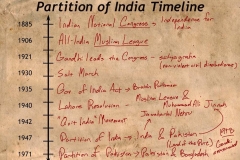 Partition of India Timeline
1885 Indian National Congress → Independence for India
1906 All-India Muslim League
1921 Gandhi leads the Congress → satyagraha (nonviolent civil disobedience)
1930 Salt March
1935 Gov. of India Act → British Retain
Muslim League &
1940 Lahore Resolution → Muhammad Ali Jinnah
1942 "Quit India" Movement → Jawaharlal Nehru
1947 Partition of India → India & Pakistan
(Land of the Pure)
1948
Gandhi
1971 Partition of Pakistan → Pakistan & Bangladesh